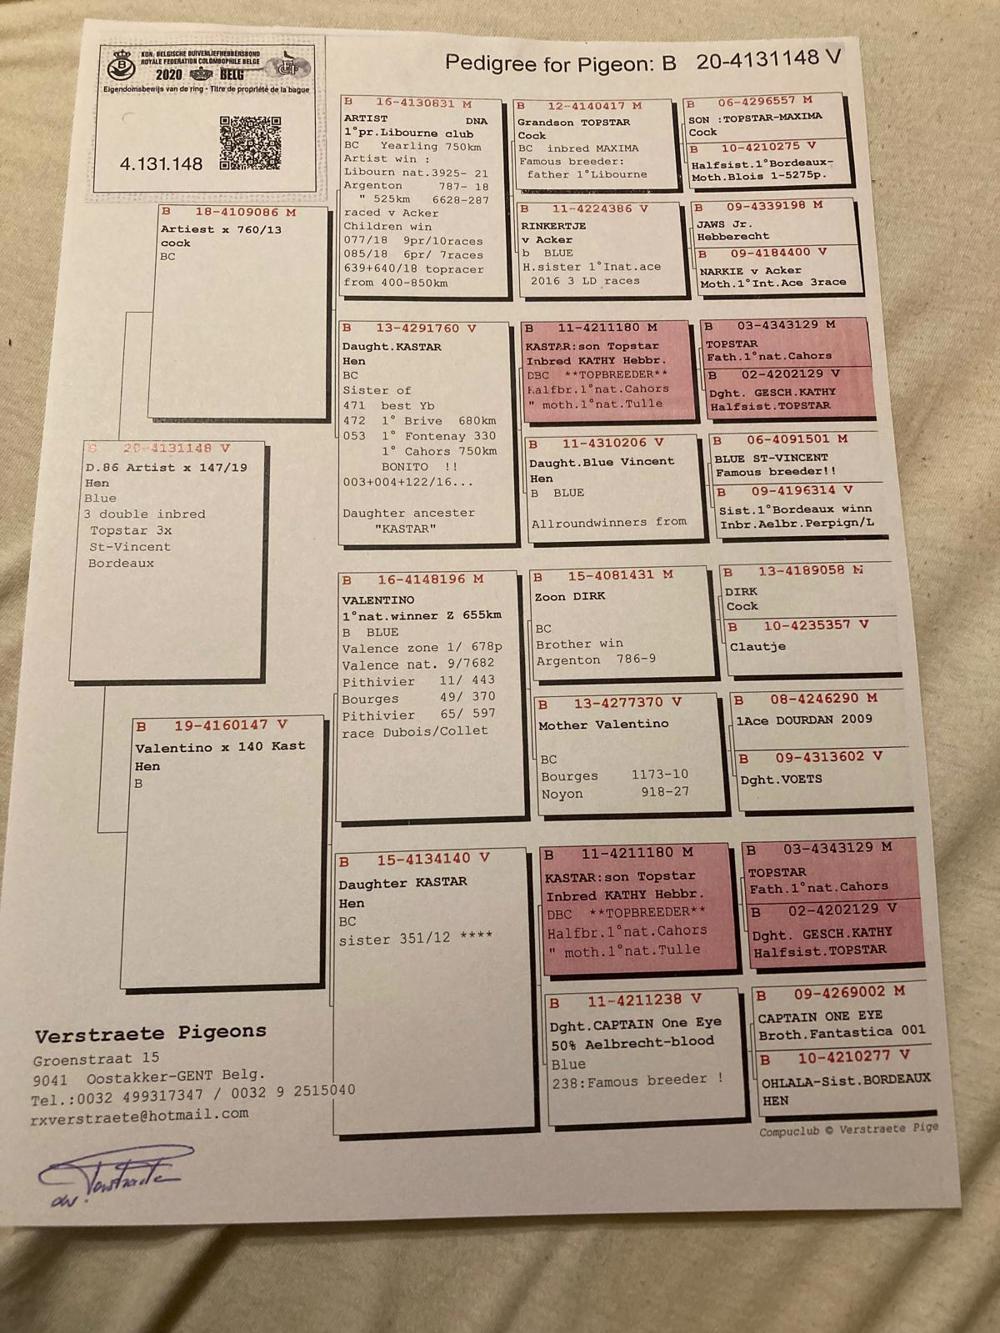 KON. BELGISCHE DUIVENLIEFHEBBERSBOND
ROYALE FEDERATION COLOMBOPHILE BELGE
2020 BELG
Eigendomsbewijs van de ring - Titre de propriété de la bague
4.131.148
Pedigree for Pigeon: B 20-4131148 V
B 18-4109086 M
Artiest x 760/13
cock
BC
B 20-4131148 V
D.86 Artist x 147/19
Hen
Blue
3 double inbred
Topstar 3x
St-Vincent
Bordeaux
B 19-4160147 V
Valentino x 140 Kast
Hen
B
B 16-4130831 M
ARTIST DNA
1°pr.Libourne club
BC Yearling 750km
Artist win :
Libourn nat.3925- 21
Argenton 787- 18
" 525km 6628-287
raced v Acker
Children win
077/18 9pr/10races
085/18 6pr/ 7races
639+640/18 topracer
from 400-850km
B 13-4291760 V
Daught.KASTAR
Hen
BC
Sister of
471 best Yb
472 1° Brive 680km
053 1° Fontenay 330
1° Cahors 750km
BONITO !!
003+004+122/16...
Daughter ancester
"KASTAR"
B 16-4148196 M
VALENTINO
1°nat.winner Z 655km
B BLUE
Valence zone 1/ 678p
Valence nat. 9/7682
Pithivier 11/ 443
Bourges 49/ 370
Pithivier 65/ 597
race Dubois/Collet
B 15-4134140 V
Daughter KASTAR
Hen
BC
sister 351/12 ****
B 12-4140417 M
Grandson TOPSTAR
Cock
BC inbred MAXIMA
Famous breeder:
father 1°Libourne
B 11-4224386 V
RINKERTJE
v Acker
b BLUE
H.sister 1°Inat.ace
2016 3 LD races
B 11-4211180 M
KASTAR:son Topstar
Inbred KATHY Hebbr.
DBC **TOPBREEDER**
Halfbr.1°nat.Cahors
" moth.1°nat.Tulle
B 11-4310206 V
Daught.Blue Vincent
Hen
B BLUE
Allroundwinners from
B 15-4081431 M
Zoon DIRK
BC
Brother win
Argenton 786-9
B 13-4277370 V
Mother Valentino
BC
Bourges 1173-10
Noyon 918-27
B 11-4211180 M
KASTAR:son Topstar
Inbred KATHY Hebbr.
DBC **TOPBREEDER**
Halfbr.1°nat.Cahors
" moth.1°nat.Tulle
B 11-4211238 V
Dght.CAPTAIN One Eye
50% Aelbrecht-blood
Blue
238:Famous breeder !
B 06-4296557 M
SON :TOPSTAR-MAXIMA
Cock
B 10-4210275 V
Halfsist.1°Bordeaux-
Moth.Blois 1-5275p.
B 09-4339198 M
JAWS Jr.
Hebberecht
B 09-4184400 V
NARKIE v Acker
Moth.1°Int.Ace 3race
B 03-4343129 M
TOPSTAR
Fath.1°nat.Cahors
B 02-4202129 V
Dght. GESCH.KATHY
Halfsist.TOPSTAR
B 06-4091501 M
BLUE ST-VINCENT
Famous breeder!!
B 09-4196314 V
Sist.1°Bordeaux winn
Inbr.Aelbr.Perpign/L
B 13-4189058 M
DIRK
Cock
B 10-4235357 V
Clautje
B 08-4246290 M
1Ace DOURDAN 2009
B 09-4313602 V
Dght.VOETS
B 03-4343129 M
TOPSTAR
Fath.1°nat.Cahors
B 02-4202129 V
Dght. GESCH.KATHY
Halfsist.TOPSTAR
B 09-4269002 M
CAPTAIN ONE EYE
Broth.Fantastica 001
B 10-4210277 V
OHLALA-Sist.BORDEAUX
HEN
Verstraete Pigeons
Groenstraat 15
9041 Oostakker-GENT Belg.
Tel.:0032 499317347 / 0032 9 2515040
rxverstraete@hotmail.com
Compuclub © Verstraete Pige